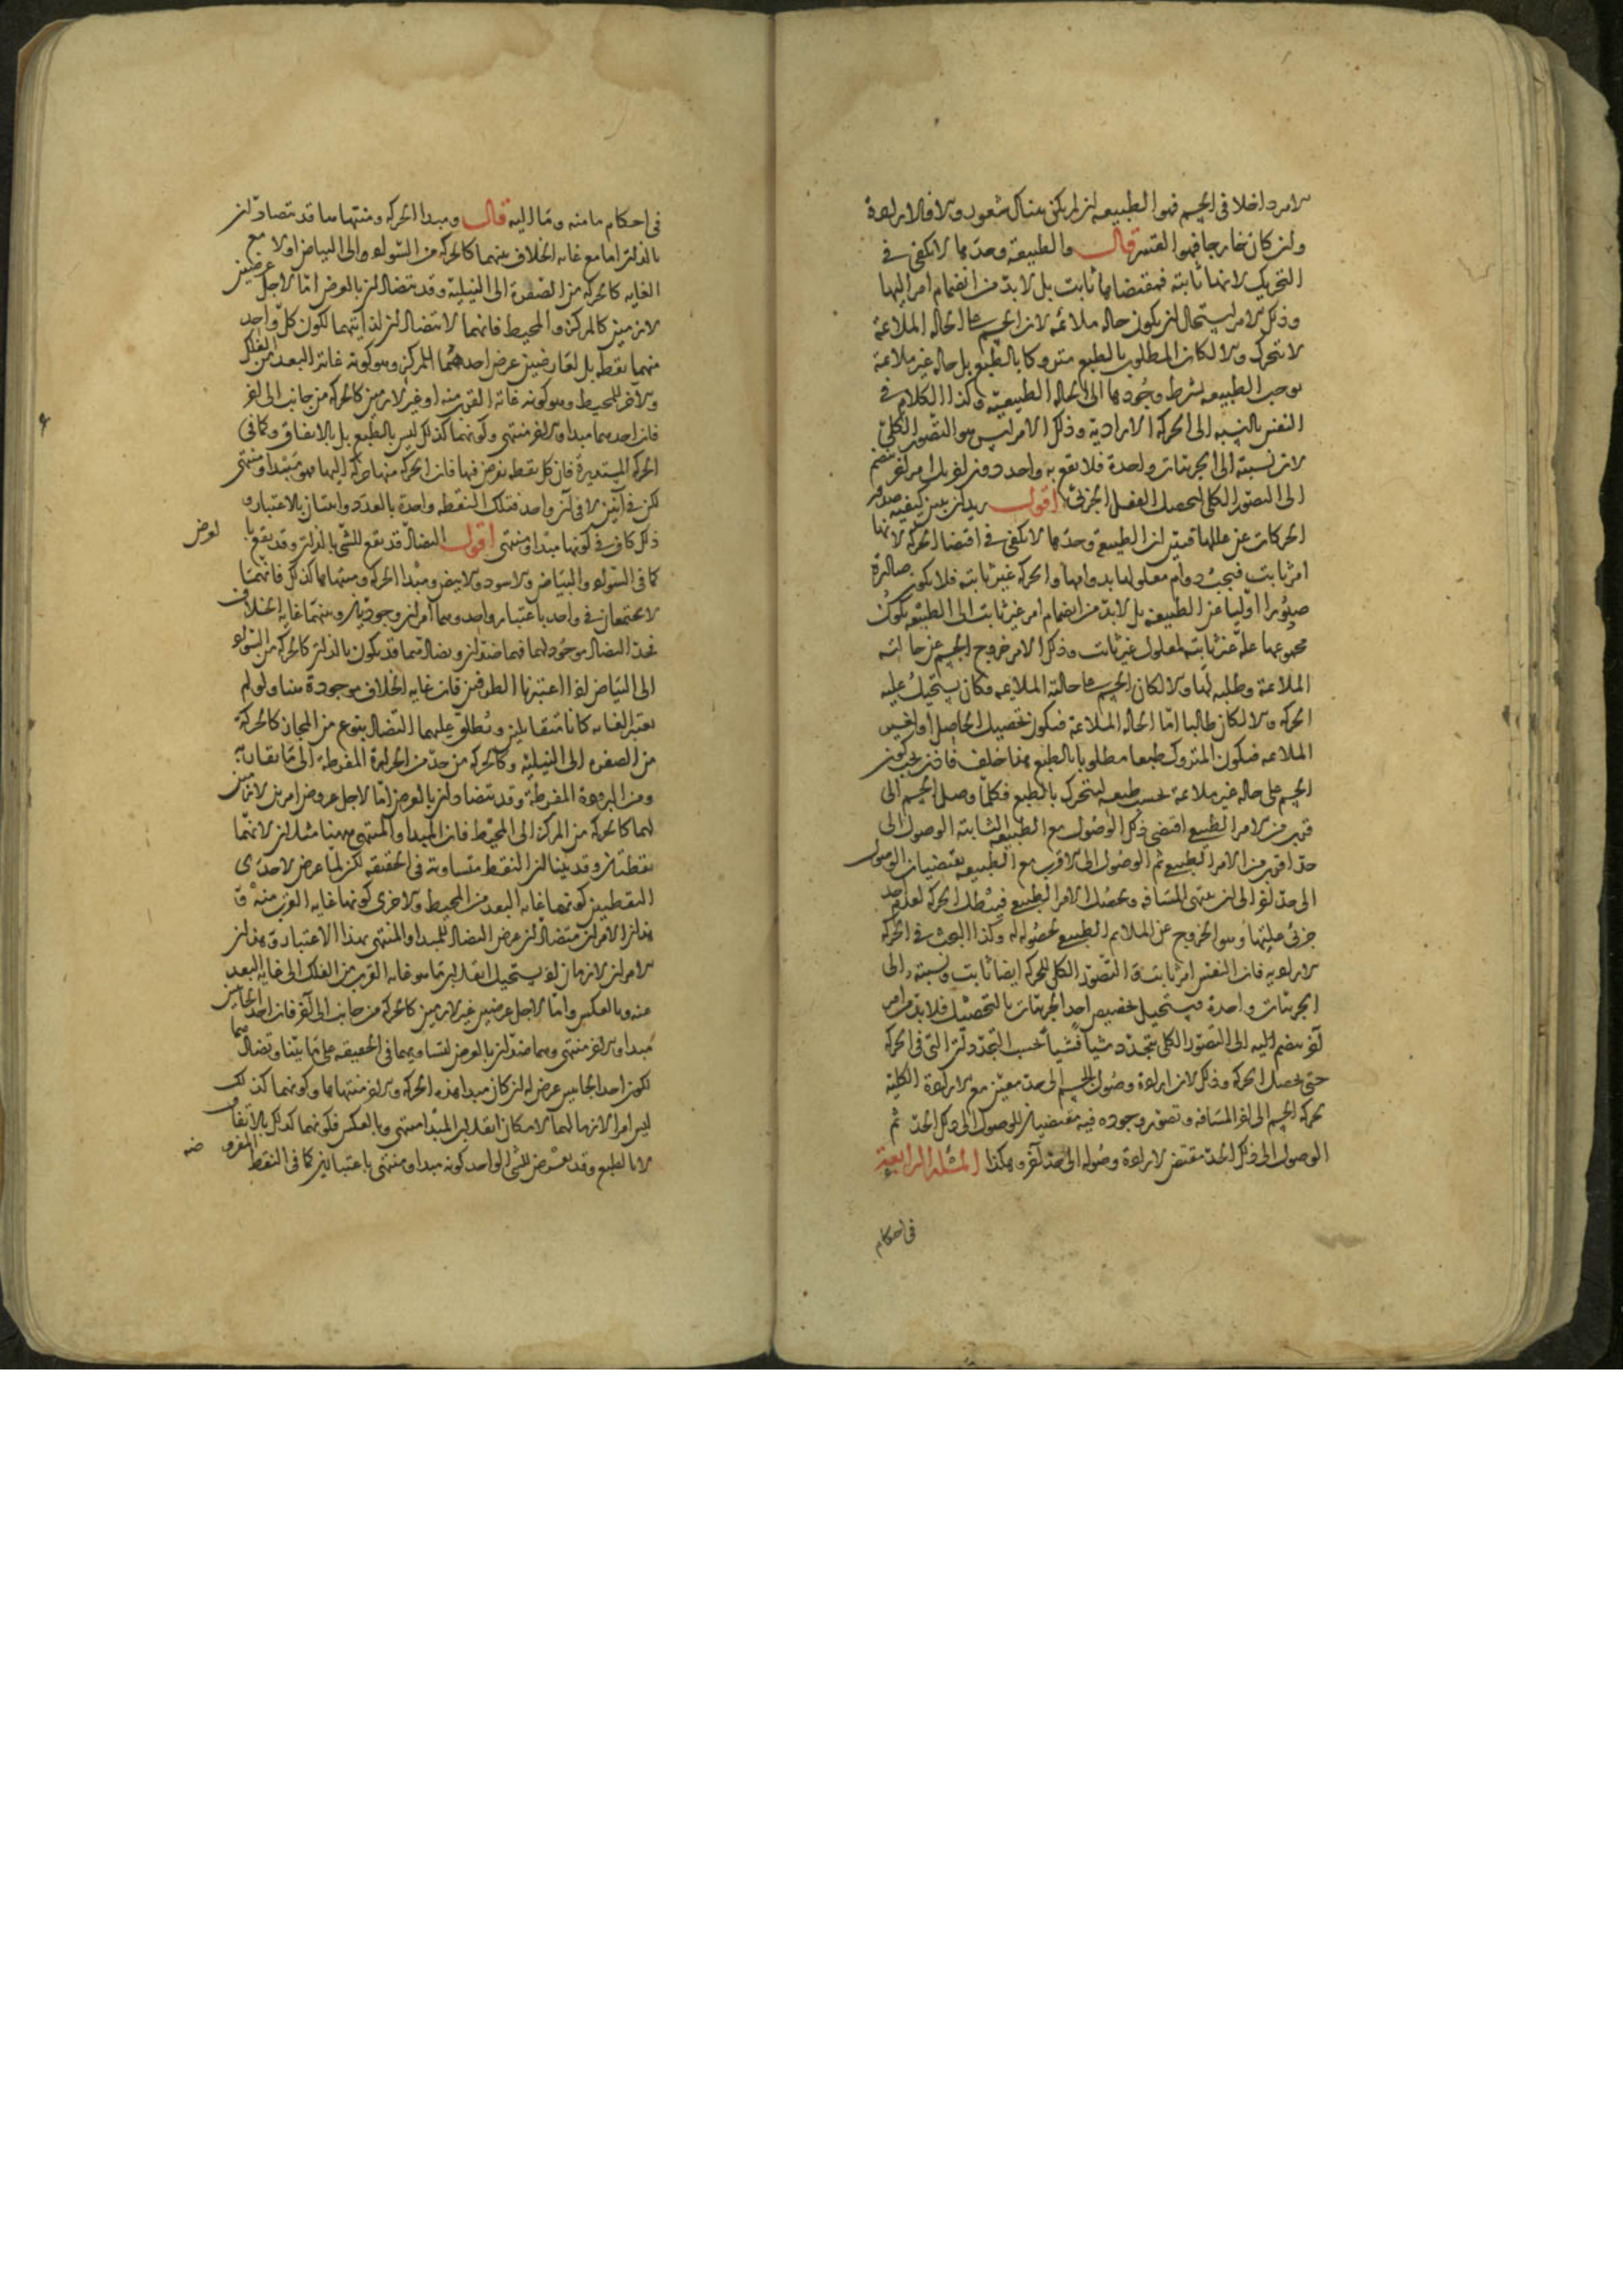 الامر داخلا فى الجسم فهو الطبيعة ان لم يكن هناك شعور والا فالارادة
وان كان خارجا فهو القسر قال والطبيعة وحدها لا تكفى فى
التحريك لانها ثابتة فمقتضاها ثابت بل لا بد من انضمام امر اليها
وذلك الامر يستحيل ان يكون حاله ملائمة لان الجسم الحالة الملائمة
لا يتحرك والا لكان المطلوب بالطبع متروكا بالطبع بل حاله غير ملائمة
توجب الطبيعة بشرط وجودها الى الحالة الطبيعية وكذا الكلام فى
النفس بالنسبة الى الحركة الارادية وذلك الامر ليس هو التصور الكلى
لان نسبته الى الجزئيات واحدة فلا يقع به واحد دون اخر بل امر اخر ينضم
الى التصور الكلى لتحصيل الفعل الجزئى اقول يريد ان يبين كيفية صدور
الحركات عن عللها فبين ان الطبيعة وحدها لا تكفى فى اقتضا الحركة لانها
امر ثابت فيجب دوام معلولها بدوامها والحركة غير ثابتة فلا تكون صادرة
صدورا اوليا عن الطبيعة بل لا بد من انضمام امر غير ثابت الى الطبيعة يكون
مجموعهما علة غير ثابتة لمعلول غير ثابت وذلك الامر خروج الجسم عن حالته
الملائمة وطلبه لها والا لكان الجسم حالته الملائمة فكان يستحيل عليه
الحركة والا لكان طالبا اما الحالة الملائمة فيكون تحصيل الحاصل او لغير
الملائمة فيكون المتروك طبعا مطلوبا بالطبع هذا خلف فاذن يجب كون
الجسم على حاله غير ملائمة بحسب طبعه ليتحرك بالطبع فكلما وصل الجسم الى
قرب من الامر الطبيعى اقتضى ذلك الوصول مع الطبيعة الثابتة الوصول الى
حد اقرب من الامر الطبيعى ثم الوصول الى الاقرب مع الطبيعة يقتضيان الوصول
الى حد اخر الى ان ينتهى المسافة ويحصل الامر الطبيعى فيبطل الحركة لعدم احد
جزئى عليتها وهو الخروج عن الملائم الطبيعى لحصوله له وكذا البحث فى الحركة
الارادية فان النفس امر ثابت والتصور الكلى للحركة ايضا ثابت ونسبته الى
الجزئيات واحدة فيستحيل تخصيص احد الجزئيات بالتحصيل فلا بد من امر
آخر ينضم اليه الى التصور الكلى يتجدد شيأ فشيأ بحسب التجددات التى فى الحركة
حتى يحصل الحركة وذلك لان ارادة وصول الجسم الى حد معين مع الارادة الكلية
لحركة الجسم الى اخر المسافة وتصور وجوده فيه مقتضيان للوصول الى ذلك الحد ثم
الوصول الى ذلك الحد مقتض لارادة وصوله الى حد آخر وهكذا المسئلة الرابعة
فى احكام
فى احكام ما منه وما اليه قال ومبدا الحركة ومنتهاها قد يتضادان
بالذات اما مع غاية الخلاف بينهما كالحركة من السواد والى البياض اولا مع
الغاية كالحركة من الصفرة الى النيلية وقد يتضادان بالعرض اما لاجل عرضين
لازمين كالمركز والمحيط فانهما لا يتضادان لذاتيهما لكون كل واحد
منهما نقطة بل لعارضين عرض احدهما للمركز وهو كونه غاية البعد من الفلك
والآخر للمحيط وهو كونه غاية القرب منه او غير لازمين كالحركة من جانب الى اخر
فان احدهما مبدا والاخر منتهى وكونهما كذلك ليس بالطبع بل بالاتفاق وكما فى
الحركة المستديرة فان كل نقطة يفرض فيها فان الحركة منها حركة اليها فهو مبتدا ومنتهى
لكن فى آنين لا فى آن واحد فتلك النقطة واحدة بالعدد واثنتان بالاعتبار و
ذلك كاف فى كونها مبدا ومنتهى اقول التضاد قد يقع للشئ بالذات وقد يقع با
لعرض
كما فى السواد والبياض والاسود والابيض ومبدا الحركة ومنتهاها كذلك فانهما
لا يجتمعان فى واحد باعتبار واحد وهما امران وجوديان وبينهما غاية الخلاف
فحد التضاد موجود لهما فهما ضدان وتضادهما قد يكون بالذات كالحركة من السواد
الى البياض اذا اعتبرنا الطرفين فان غاية الخلاف موجودة هنا ولو لم
نعتبر الغاية كانا متقابلين ويطلق عليهما التضاد بنوع من المجاز كالحركة
من الصفرة الى النيلية وكالحركة من حد من الحرارة المفرطة الى ما يقاربه
ومن البرودة المفرطة وقد يتضادان بالعرض اما لاجل عروض امرين لازمين
لهما كالحركة من المركز الى المحيط فان المبدا والمنتهى ههنا مثلان لانهما
نقطتان وقد بينا ان النقط متساوية فى الحقيقة لكن لما عرض لاحدى
النقطتين كونها غاية البعد من المحيط والاخرى كونها غاية القرب منه و
هذان الامران متضادان عرض التضاد للمبدا والمنتهى بهذا الاعتبار وهذان
الامران لازمان اذ يستحيل انقلاب ما هو غاية القرب من الفلك الى غاية البعد
عنه وبالعكس واما لاجل عرضين غير لازمين كالحركة من جانب الى آخر فان احد الجانبين
مبدا والاخر منتهى وهما ضدان بالعرض لتساويهما فى الحقيقة على ما بينا وتضادهما
لكون احد الجانبين عرض له ان كان مبدا هذه الحركة والاخر منتهاها وكونهما كذلك
ليس امرا لازما لهما لامكان انقلاب المبدا منتهى وبالعكس فكونهما كذلك بالاتفاق
لا بالطبع وقد يعرض للشئ الواحد كونه مبدا ومنتهى باعتبارين كما فى النقط المفرو
ضه